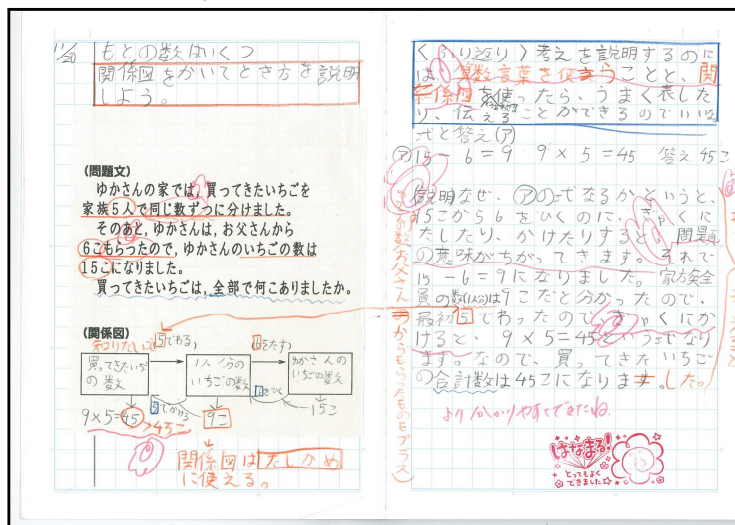 11/20
もとの数はいくつ
関係図をかいてとき方を説明
しよう。
(問題文)
ゆかさんの家では,買ってきたいちごを
家族5人で同じ数ずつに分けました。
そのあと,ゆかさんは,お父さんから
6こもらったので,ゆかさんのいちごの数は
15こになりました。
買ってきたいちごは,全部で何こありましたか。
(関係図)
知りたいこと
5でわる
6をたす
買ってきたいちご
の数
1人分の
いちごの数
ゆかさんの
いちごの数
5でかける
6をひく
9×5=45
45こ
9こ
15こ
関係図はたしかめ
に使える。
<ふり返り>考えを説明するのに
は、算数言葉を使うことと、関
係図を使ったら、うまく表した
り、伝えることができるのでいいな。
式と答え(ア)
㋐15-6=9 9×5=45 答え 45こ
説明なぜ、㋐の式なるかというと、
15こから6をひくのに、ぎゃくに
たしたり、かけたりすると、問題
の意味がちがってきます。それで
15-6=9になりました。家族全
員の数(1人分)は9こだと分かったので、
最初5でわったので、ぎゃくにか
けると、9×5=45という式になり
ます。なので、買ってきたいちご
の合計数は45こになりました。
お父さんからもらったものもプラス)
より分かりやすくできたね。
はなまる!
とってもよく
できました